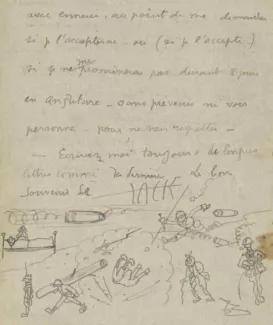 avec ennui, au point de me demander
si je l'accepterai - ou (si je l'accepte)
si je ne me promènerai pas durant 8 jours
en Angleterre - sans prévenir ni vous
personne - pour ne rien regretter -
- Écrivez moi toujours de longues
lettres comme la dernière. Le bon
souvenir de JACK